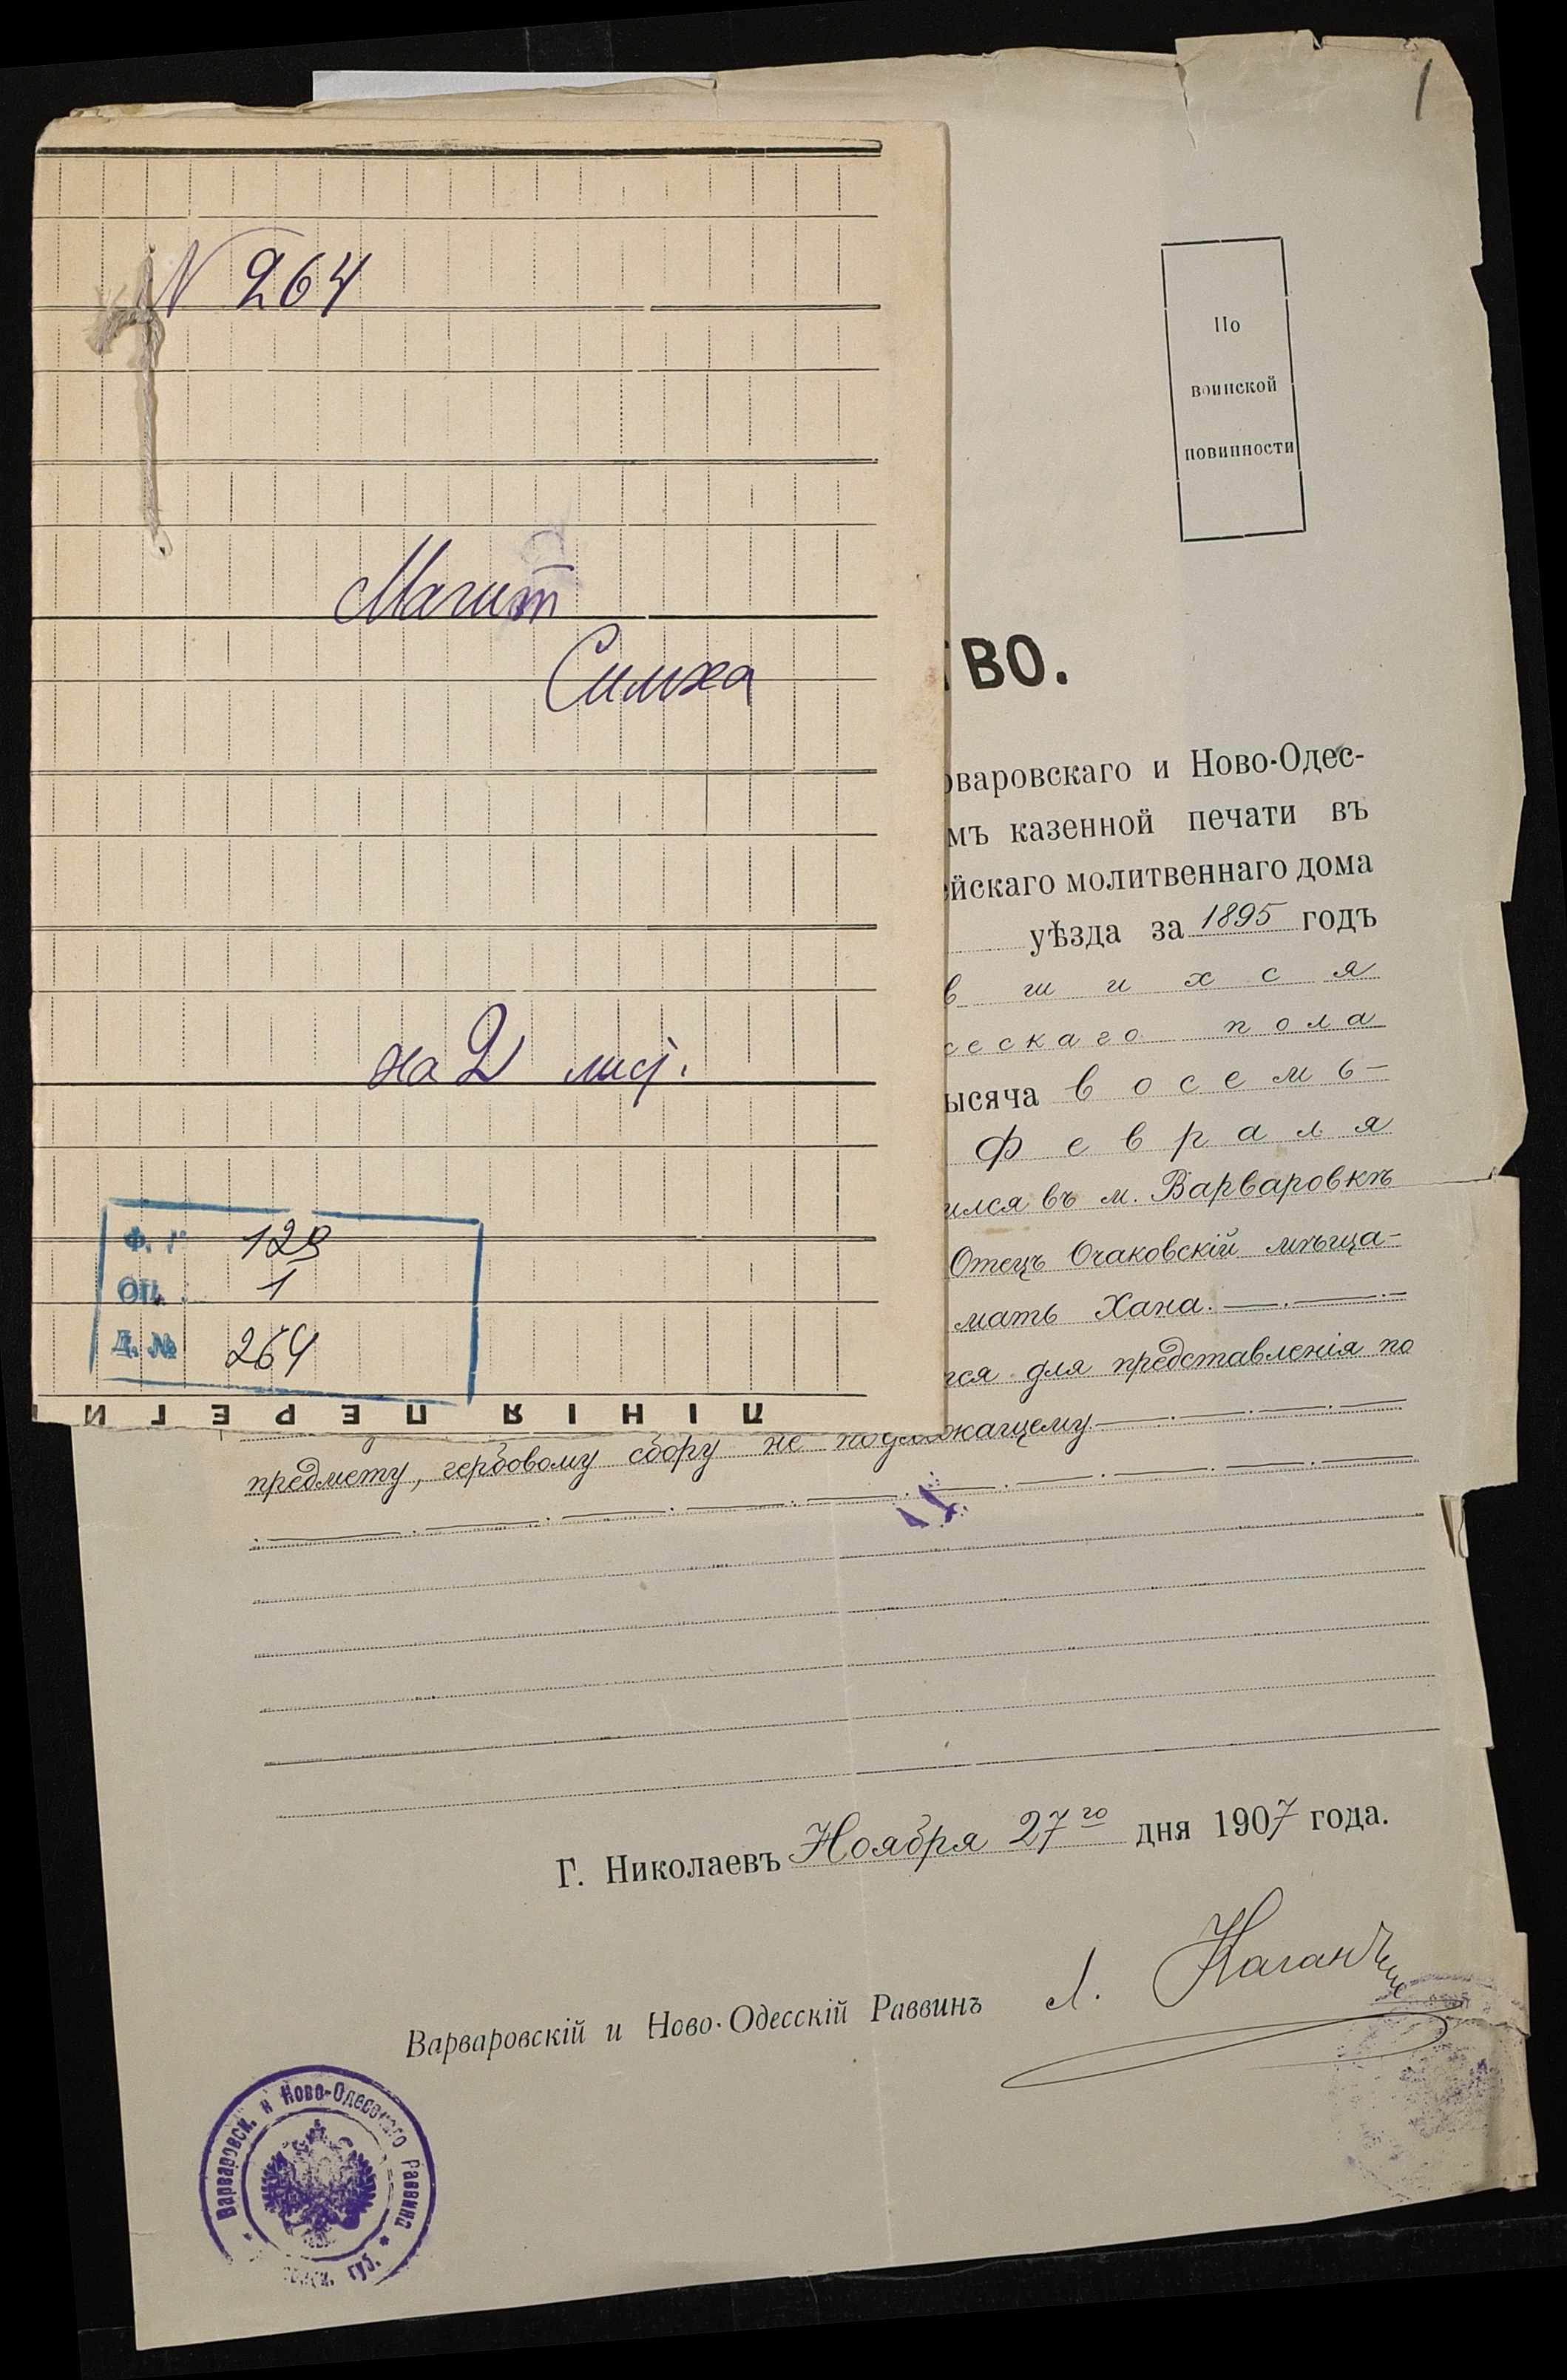 1
N 264
Магит
Симха
на 2 лис.
Ф. №
Оп. 1
Д. № 264
ПІНІЯ ПЕРЕГИ
По
воинской
повинности
ТВО.
рваровскаго и Ново-Одес-
мъ казенной печати въ
ейскаго молитвеннаго дома
уѣзда за 1895 годъ
в ш и х с я
ескаго пола
ысяча восемь-
Февраля
ился въ м. Варваровкѣ
Отецъ Очаковскій мѣща-
мать Хана.
тся для представленія по
предмету, гербовому сбору не подлежащему.
Г. Николаевъ Ноября 27го дня 1907 года.
Варваровскій и Ново-Одесскій Раввинъ Л. Каганъ
Варваровск. и Ново-Одесскаго Раввина
губ.